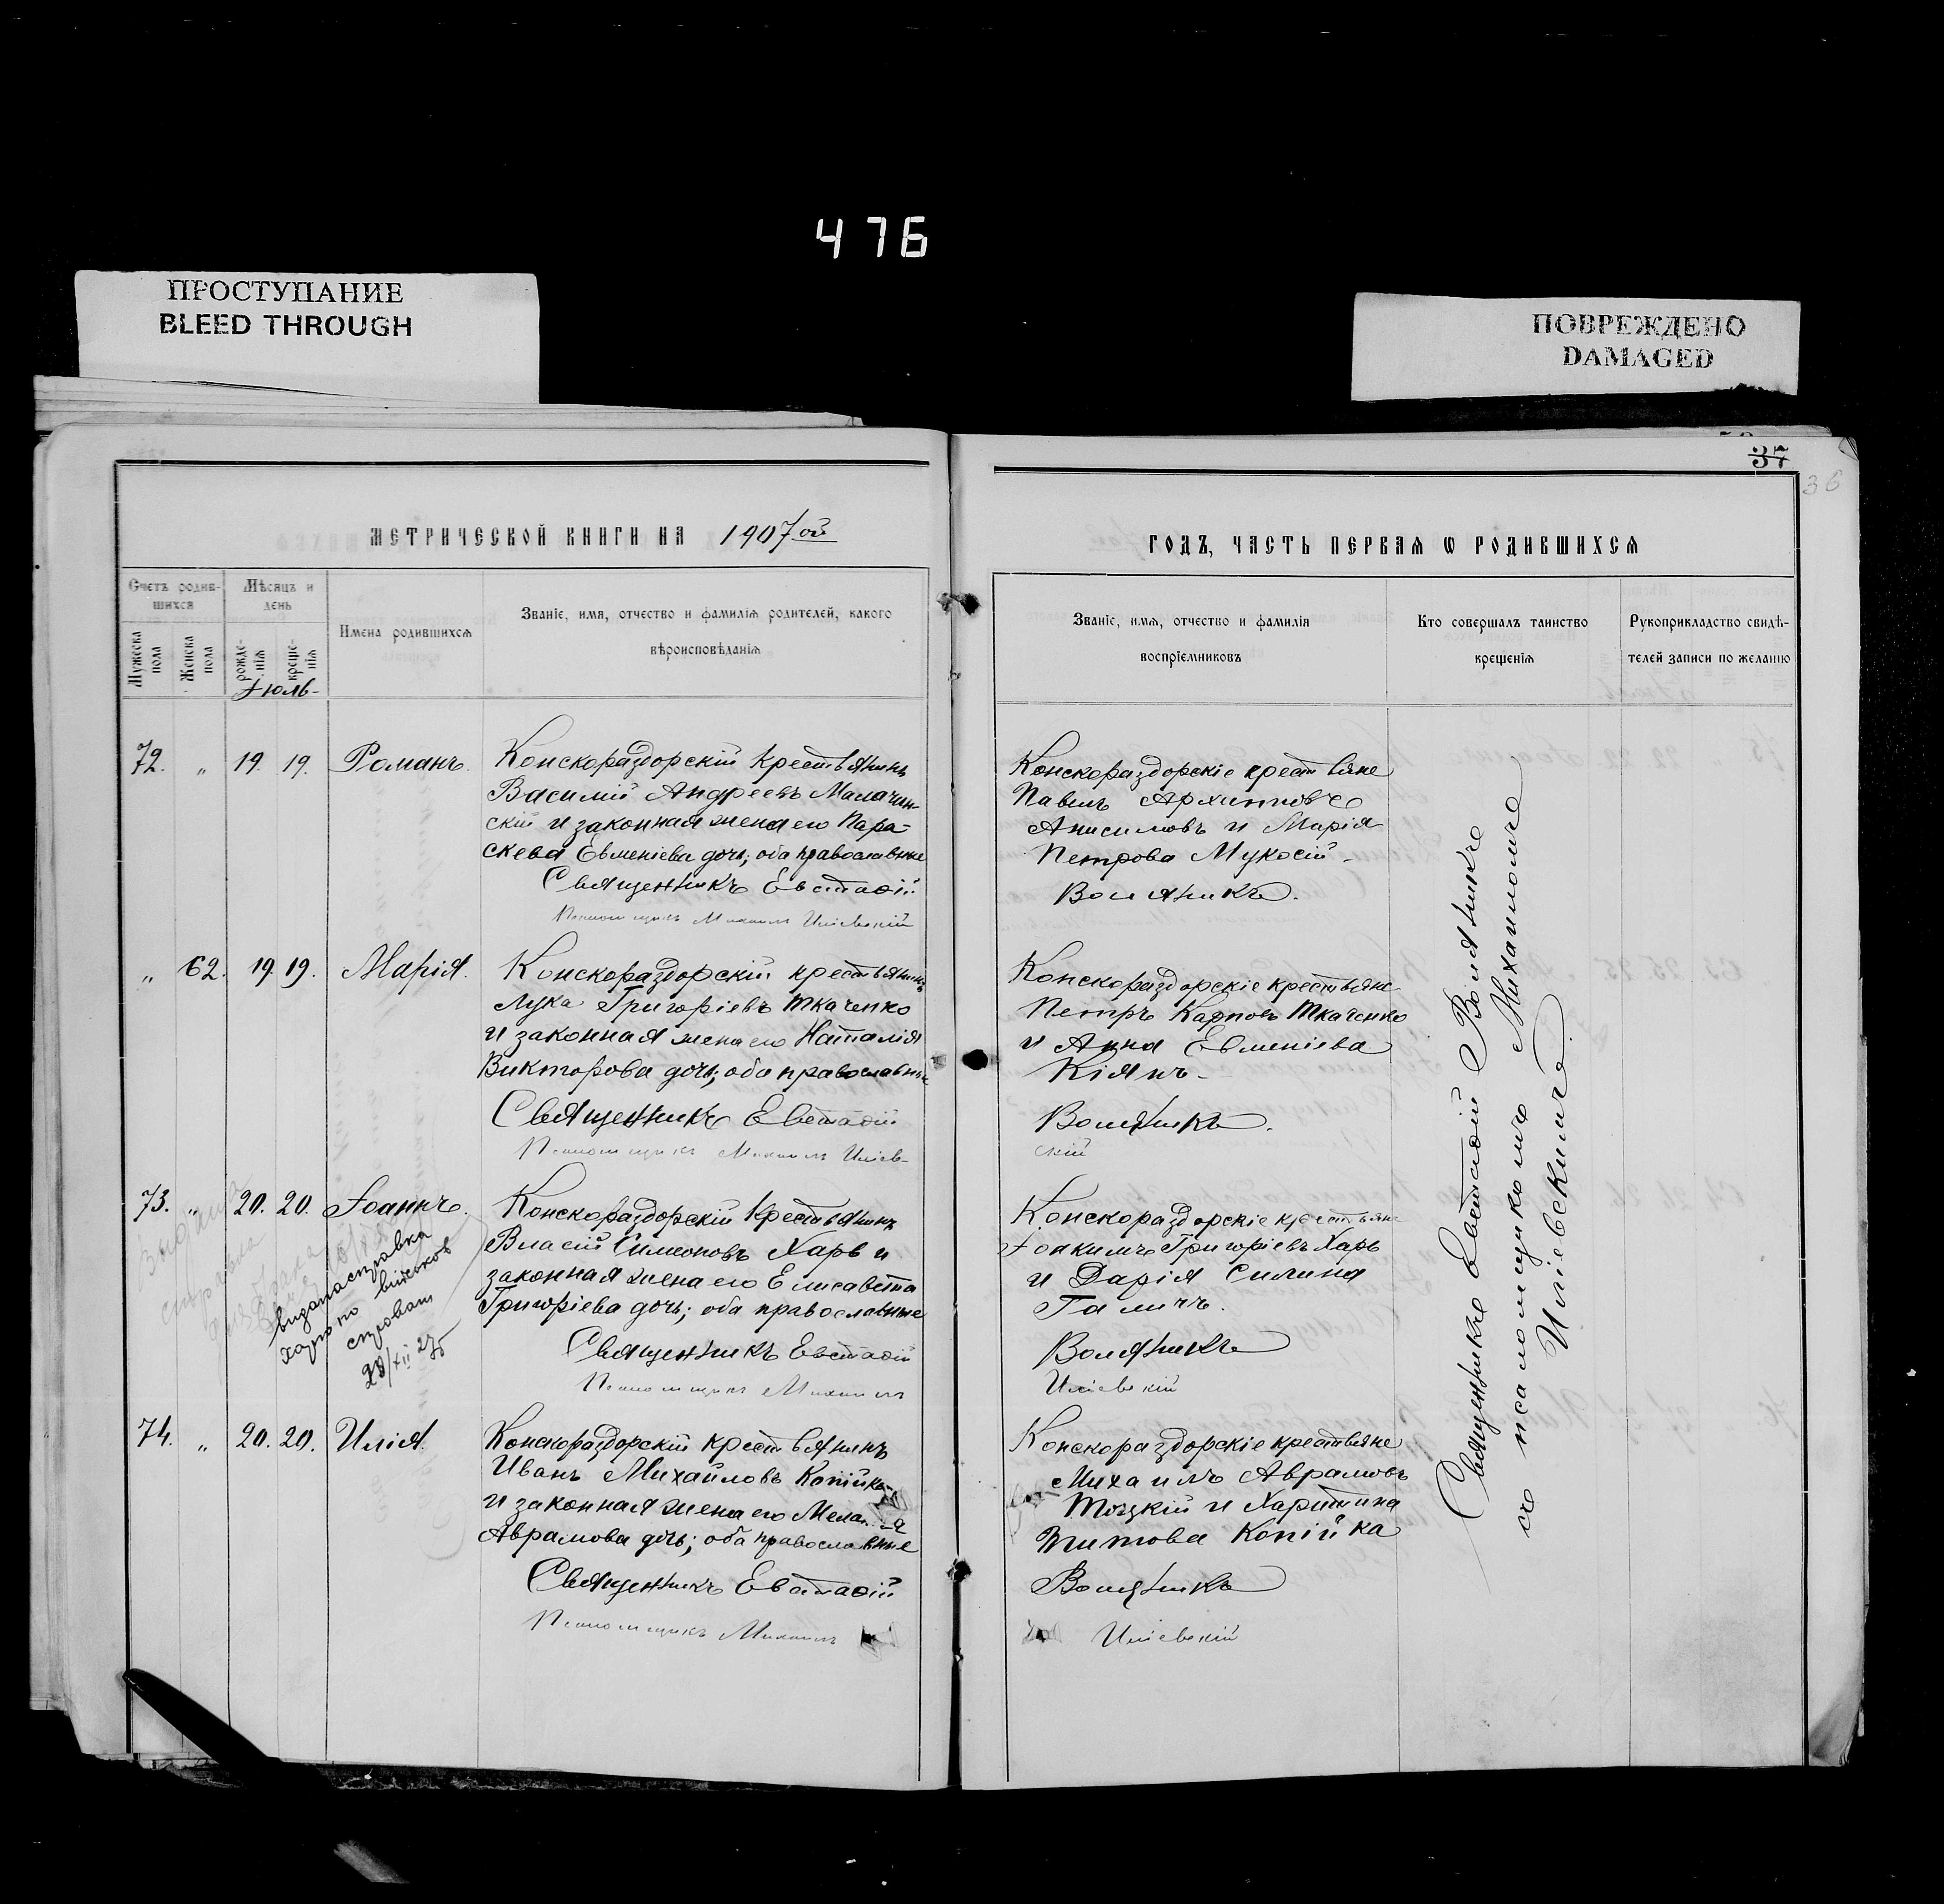 476
ПРОСТУПАНИЕ
BLEED THROUGH
ПОВРЕЖДЕНО
DAMAGED
37
36
МЕТРИЧЕСКОЙ КНИГИ НА 1907ой
Счетъ родив-
шихся
Мужеска пола
Женска пола
Мѣсяцъ и
день
рожде-
нія
креще-
нія
Іюль
Имена родившихся
Званіе, имя, отчество и фамилія родителей, какого
вѣроисповѣданія
72. „ 19. 19. Романъ.
Конскораздорскій крестьянинъ
Василій Андреевъ Малачин-
скій и законная жена его Пара-
скева Евменіева дочь; оба православные
Священникъ Евстафій
Псаломщикъ Михаилъ Иліевскій
„ 62. 19. 19. Марія.
Конскораздорскій крестьянинъ
Лука Григоріевъ Ткаченко
и законная жена его Наталія
Викторова дочь; оба православные
Священникъ Евстафій
Псаломщикъ Михаилъ Иліев-
73. „ 20. 20. Іоаннъ.
Конскораздорскій крестьянинъ
Власій Симеоновъ Харь и
законная жена его Елисавета
Григоріева дочь; оба православные
Священникъ Евстафій
Псаломщикъ Михаилъ
видана справка
Харю по військов
справам
28/XII 27р
74. „ 20. 20. Илія.
Конскораздорскій крестьянинъ
Иванъ Михайловъ Копійка
и законная жена его Мелан
Аврамова дочь; оба православные
Священникъ Евстафій
Псаломщикъ Михаилъ
ГОДЪ, ЧАСТЬ ПЕРВАЯ Ѡ РОДИВШИХСЯ
Званіе, имя, отчество и фамилія
воспріемниковъ
Кто совершалъ таинство
крещенія
Рукоприкладство свидѣ-
телей записи по желанію
Конскораздорскіе крестьяне
Павелъ Архиповъ
Анисимовъ и Марія
Петрова Мукосій
Воляникъ.
Конскораздорскіе крестьяне
Петръ Карповъ Ткаченко
и Анна Евменіева
Кіянъ
Воляникъ.
скій
Конскораздорскіе крестьяне
Іоакимъ Григоріевъ Харь
и Дарія Силина
Галичъ.
Воляникъ
Иліевскій
Конскораздорскіе крестьяне
Михаилъ Аврамовъ
Тоцкій и Харитина
Титова Копійка
Воляникъ
Иліевскій
Священникъ Евстафій Воляникъ
съ псаломщикомъ Михаиломъ
Иліевскимъ.